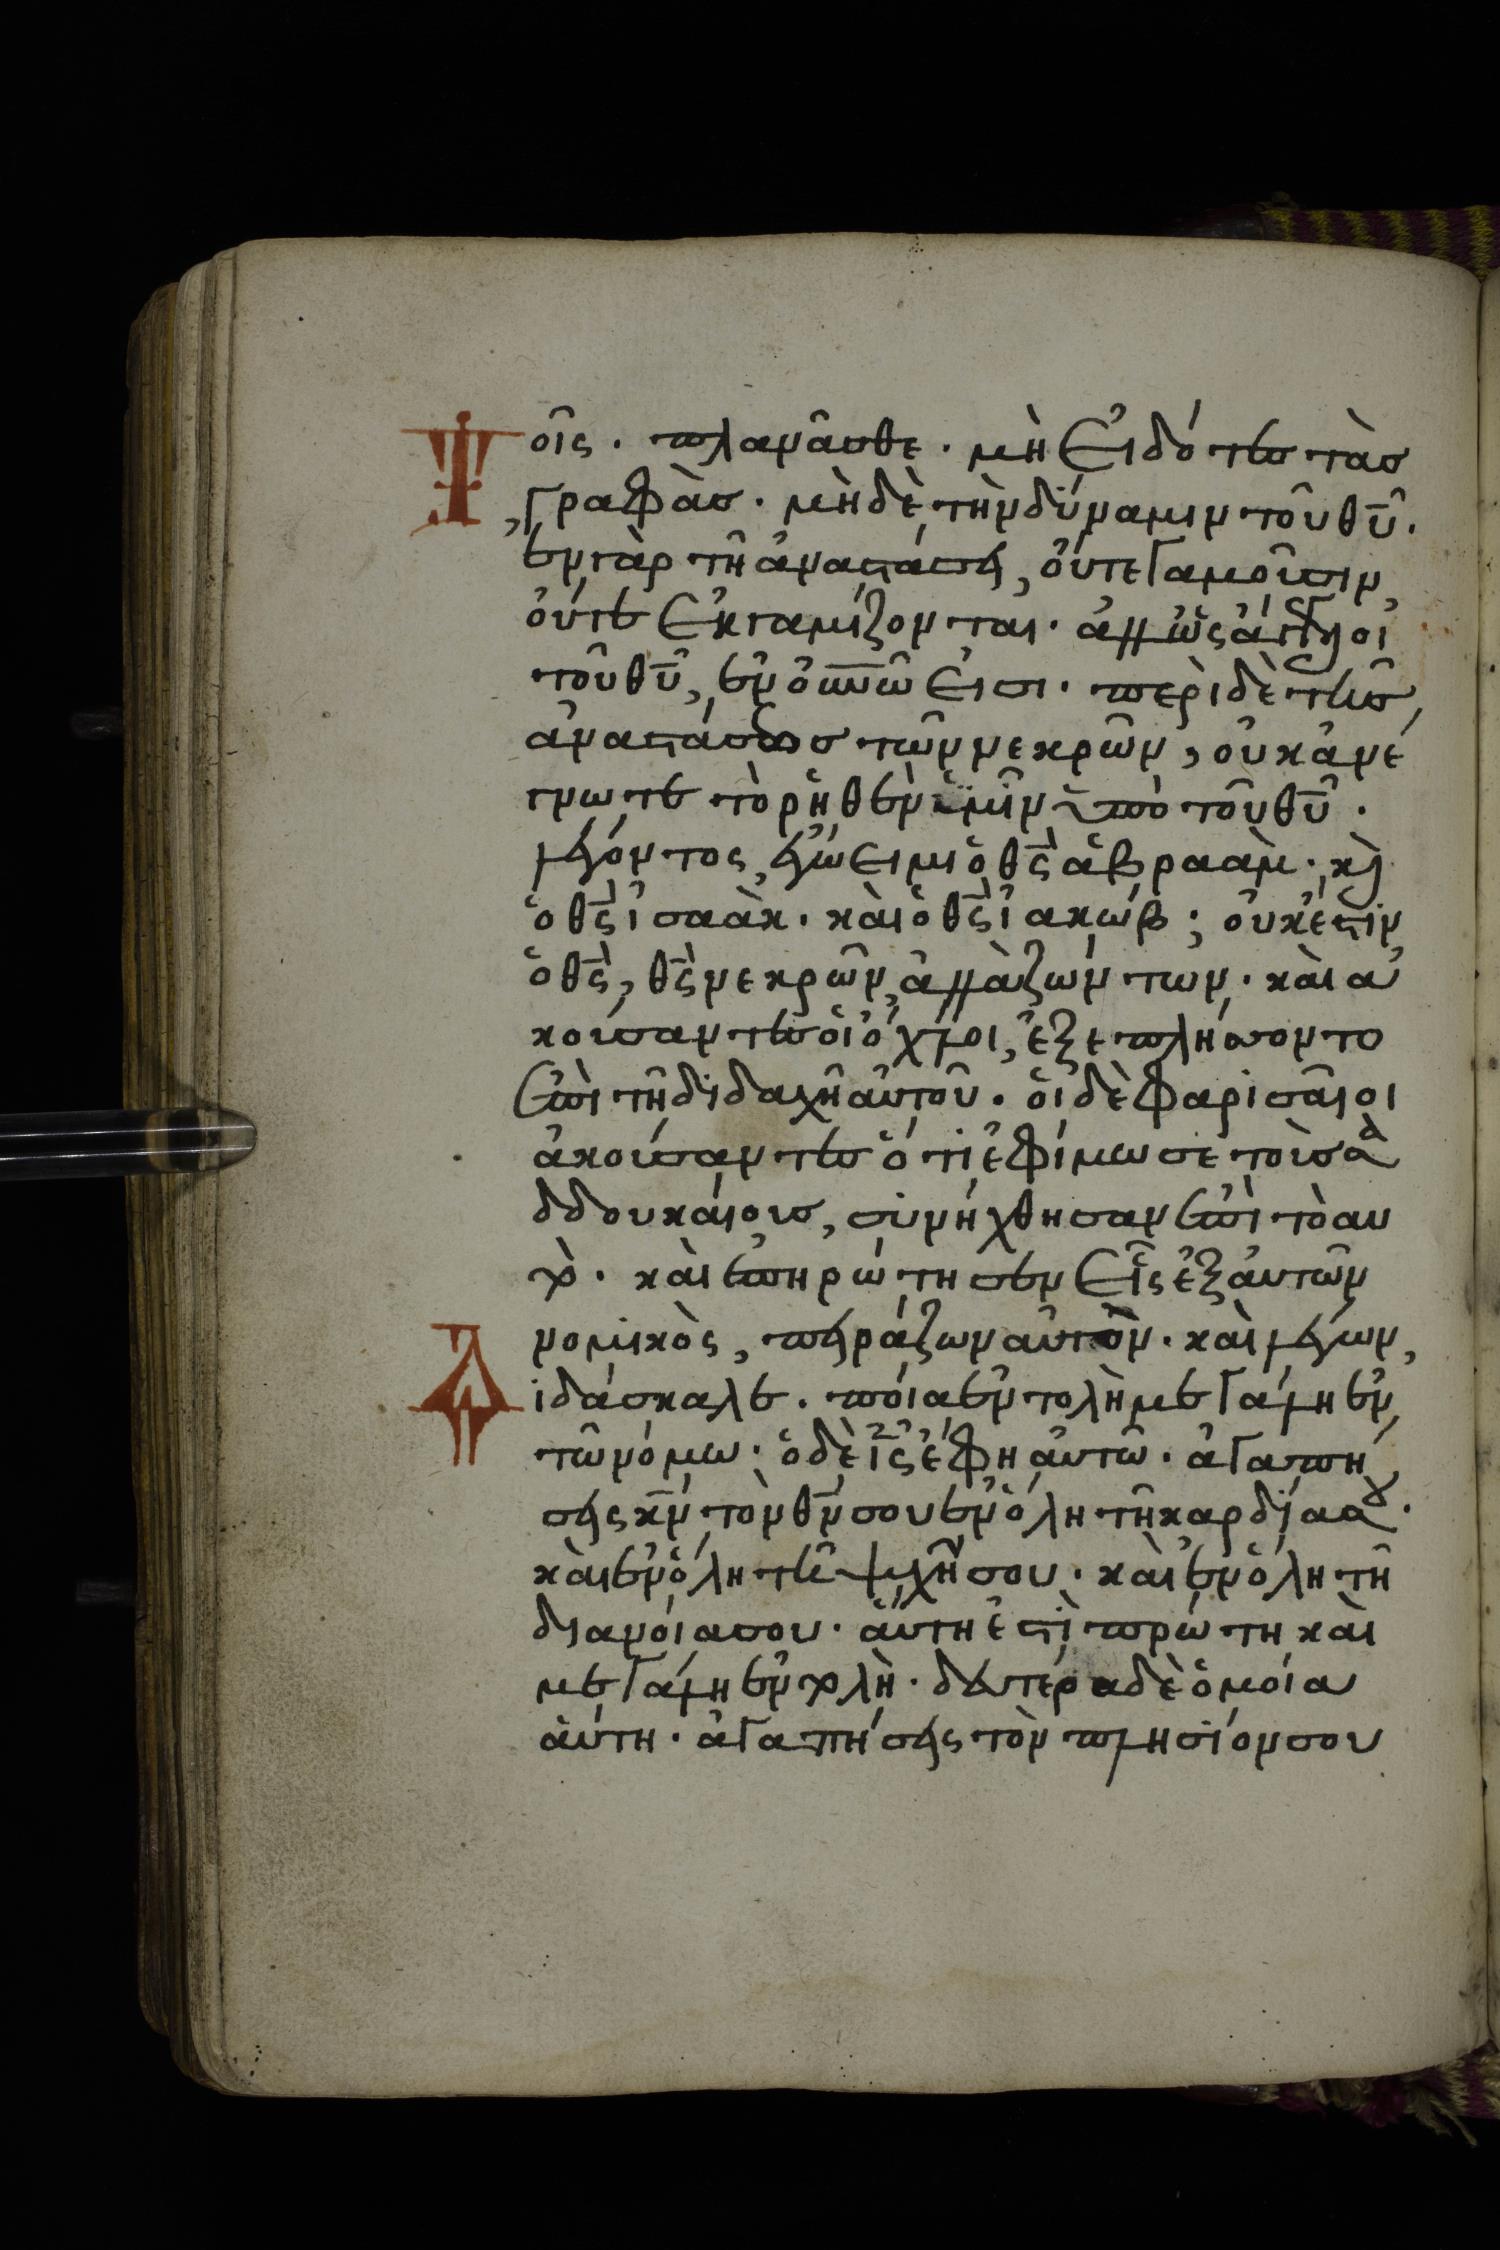 τοῖς. πλανᾶσθε. μὴ εἰδότες τὰς
γραφὰς. μὴ δὲ τὴν δύναμιν τοῦ θῦ.
ἐν γὰρ τῆ ἀναστάσει, οὔτε γαμοῦσιν,
οὔτε ἐκγαμίζονται. ἀλλ' ὡς ἄγγελοι
τοῦ θῦ, ἐν οὐνῶ εἰσι. περὶ δὲ τῆς,
ἀναστάσεως τῶν νεκρῶν, οὐκ ἀνέ
γνωτε τὸ ῥηθὲν ὑμῖν ὑπὸ τοῦ θῦ.
λέγοντος, ἐγώ εἰμι ὁ θς ἀβραὰμ. κὶ
ὁ θς ἰσαὰκ. καὶ ὁ θς ἰακώβ; οὐκ ἔστιν
ὁ θς, θς νεκρῶν, ἀλλὰ ζώντων. καὶ ἀ
κούσαντες οἱ ὄχλοι, ἐξεπλήσσοντο
ἐπὶ τῆ διδαχῆ αὐτοῦ. οἱ δὲ φαρισαῖοι
ἀκούσαντες ὅτι ἐφίμωσε τοὺς σα
δδουκαίους, συνήχθησαν ἐπὶ τὸ αυ
τὸ. καὶ ἐπηρώτησεν εἷς ἐξ αὐτῶν
νομικὸς, πειράζων αὐτὸν. καὶ λέγων,
διδάσκαλε. ποία ἐντολὴ μεγάλη ἐν
τῶ νόμω. ὁ δὲ ις ἔφη αὐτῶ. ἀγαπή
σεις κν τὸν θν σου ἐν ὅλη τῆ καρδία σου.
καὶ ἐν ὅλη τῆ ψυχῆ σου. καὶ ἐν ὅλη τῆ
διανοία σου. αὕτη ἐστὶ πρώτη καὶ
μεγάλη ἐντολὴ. δευτέρα δὲ ὁμοία
αὐτη. ἀγαπήσεις τὸν πλησίον σου